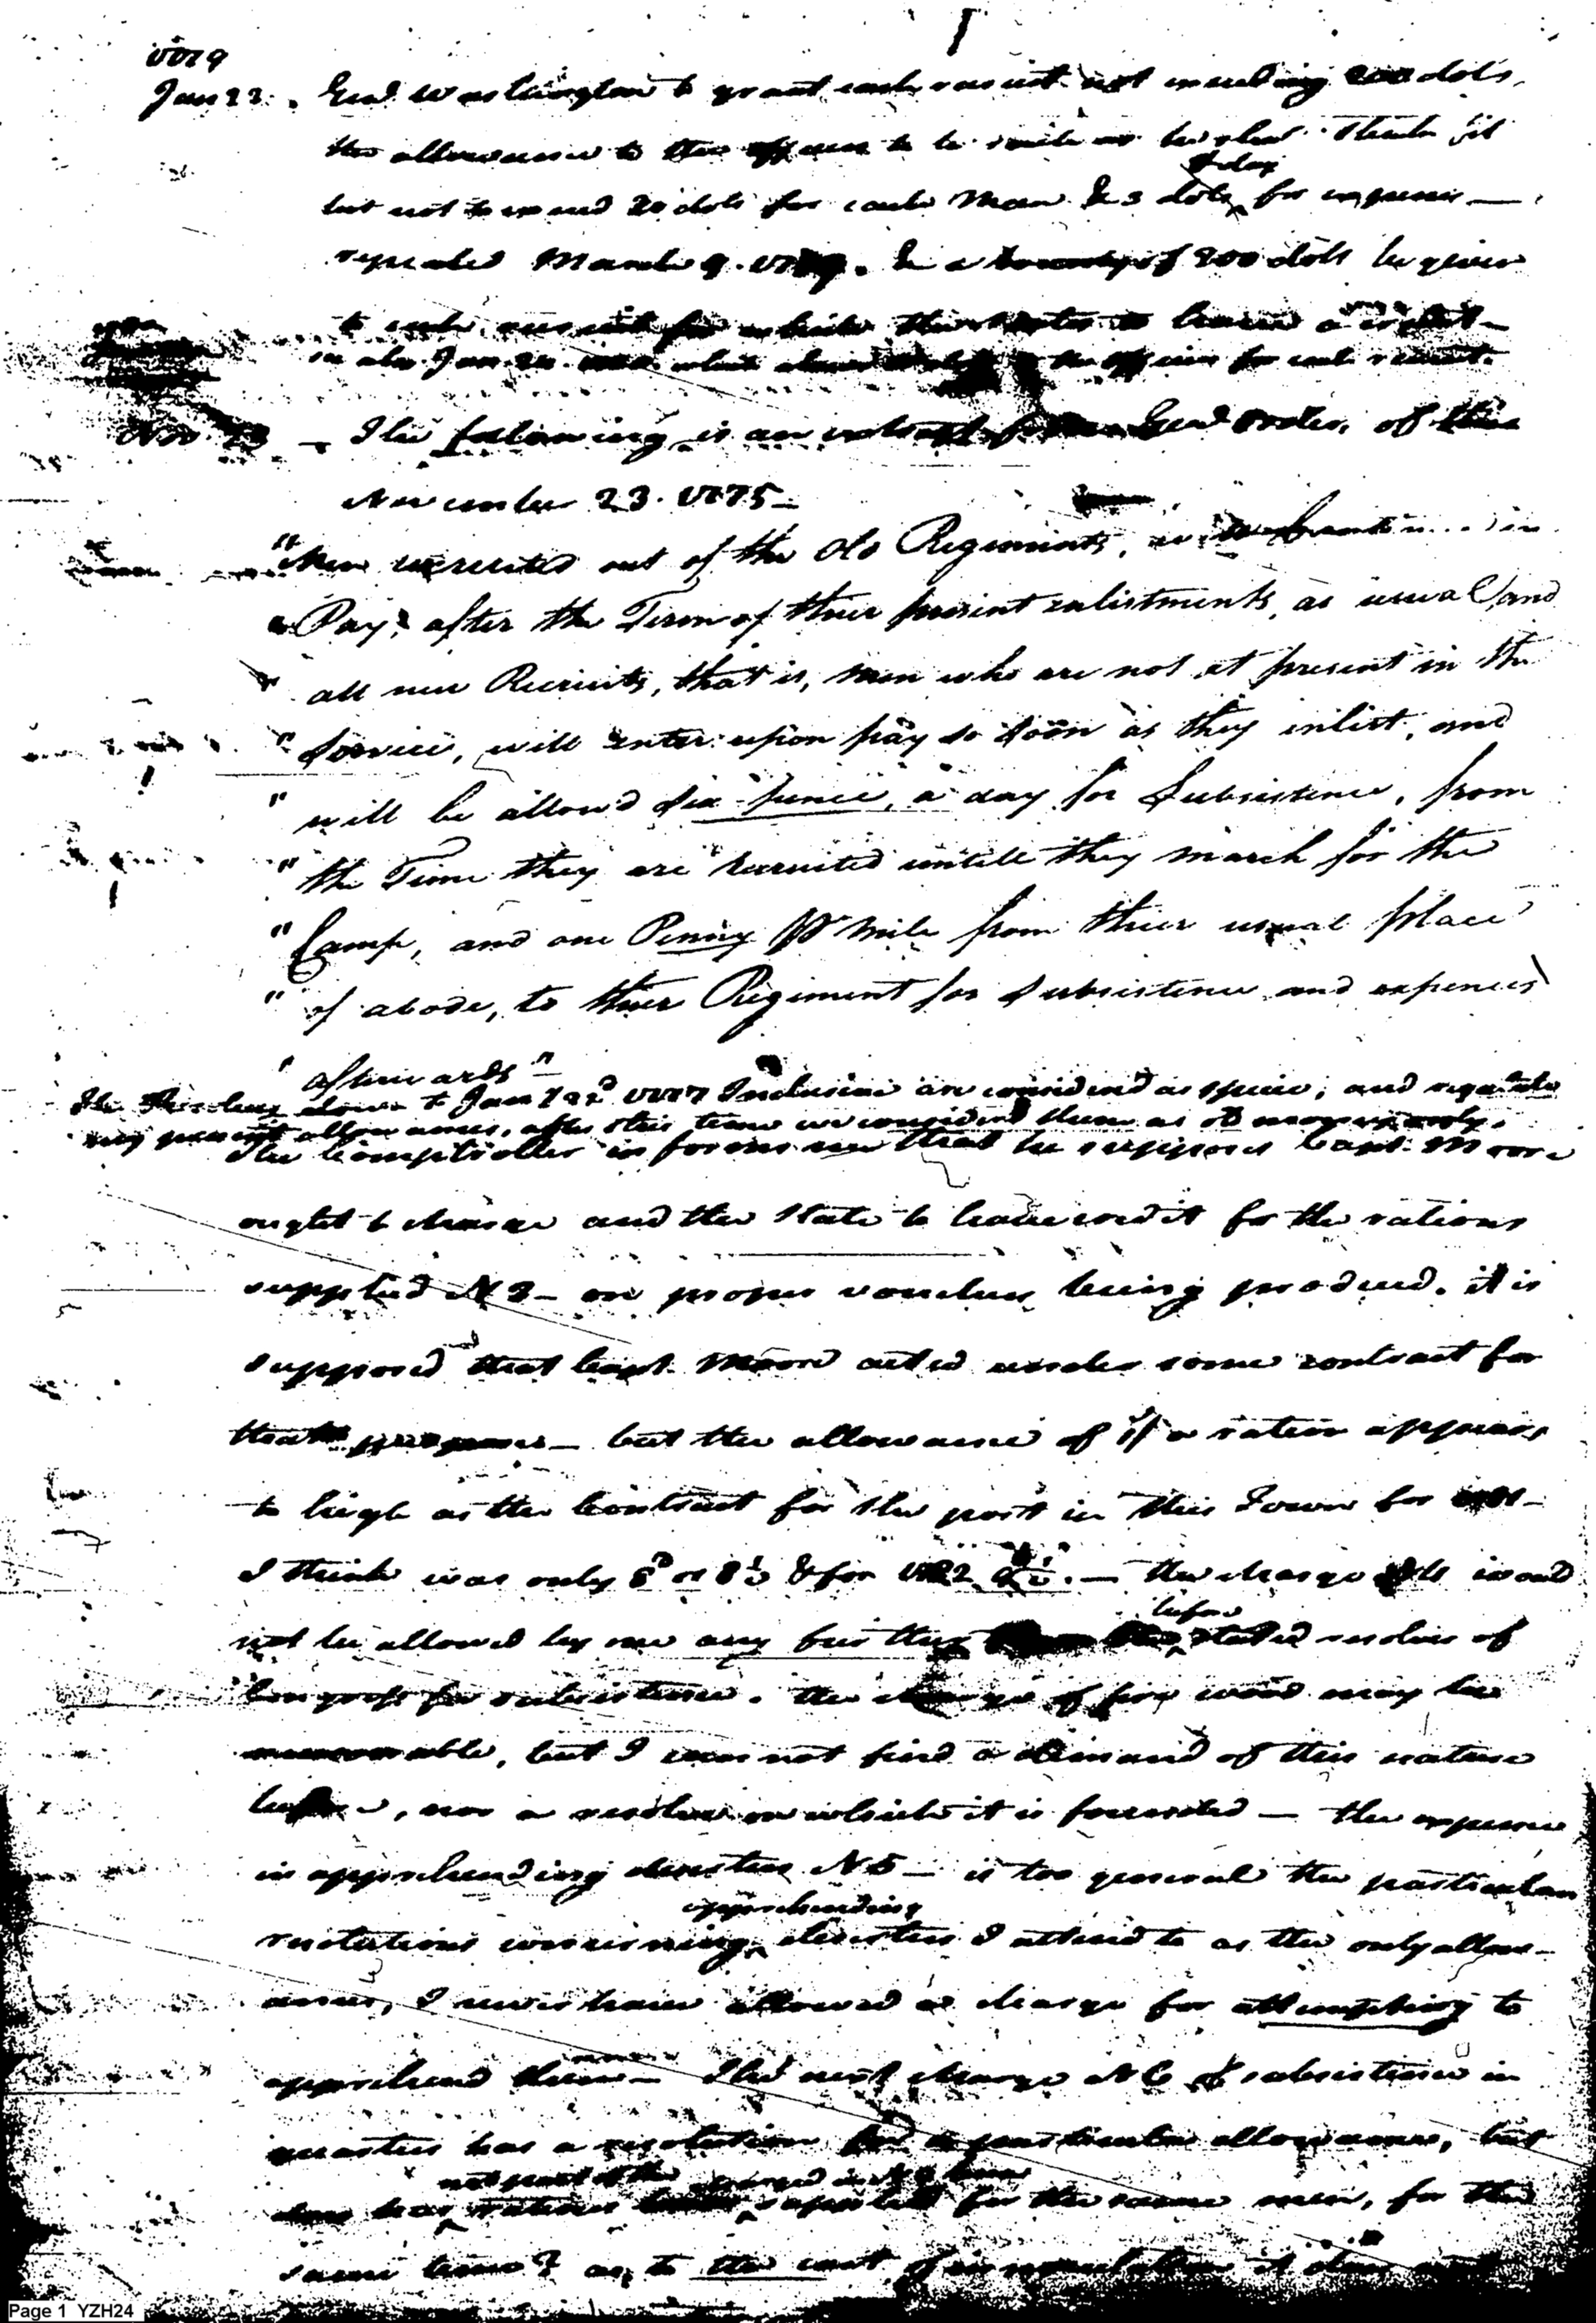 1779
Jan 23. Genl Washington to grant each recruit not exceeding 200 dols,
the allowance to the officers to be such as he shall think fit
# day
but not to exceed 20 dols for each Man & 3 dols for expenses —
repealed March 9. 1779. & a bounty of 200 dols be given
to each recruit for which the States to have credit —
in also Jan 20. which to the officer for each recruit.
Nov 23 — The following is an extract from Genl Orders, of the
November 23. 1775 —
"Men recruited out of the old Regiments, in
" Pay, after the Term of thier present enlistments, as usual and
" all new Recruits, that is, men who are not at present in the
" Service, will enter upon pay so soon as they inlist, and
" will be allow'd Six pence, a day for Subsistence, from
" the Time they are recruited untill they march for the
" Camp, and one Penny Pr Mile from thier usual place
" of abode, to thier Regiment for Subsistence and expences
" afterwards"
The Resolves down to Jan 122d 1777 Inclusive are considered as specie, and regulate
my present allowances, after this time we considered them as old money only.
The Comptroller informs me that he supposes Capt. Moore
ought to charge and the State to have credit for the rations
supplied N 3 — on proper vouchers being produced. it is
supposed that Capt. Moore acted under some contract for
that purpose — but the allowance of 1/ a ration appears
to high as the Contract for the post in this Town for
I think was only 8d or 8½ & for 1782 9½. — the charge would
before
not be allowed by me any further stated resolves of
Congress for subsistence. the charge of fire wood may be
reasonable, but I can not find a demand of this nature
before, nor a resolve on which it is founded — the expense
in apprehending deserters N 5 — is too general the particular
apprehending
resolutions concerning deserters I attend to as the only allow-
ances, I never have allowed a charge for attempting to
apprehend them — The next charge N 6 of subsistence in
quarters has a resolution for a particular allowance, but
not part of the charged in N 3 been
has rations supplied for the same men, for the
same time? as to the cost of it does not
Page 1 YZH24